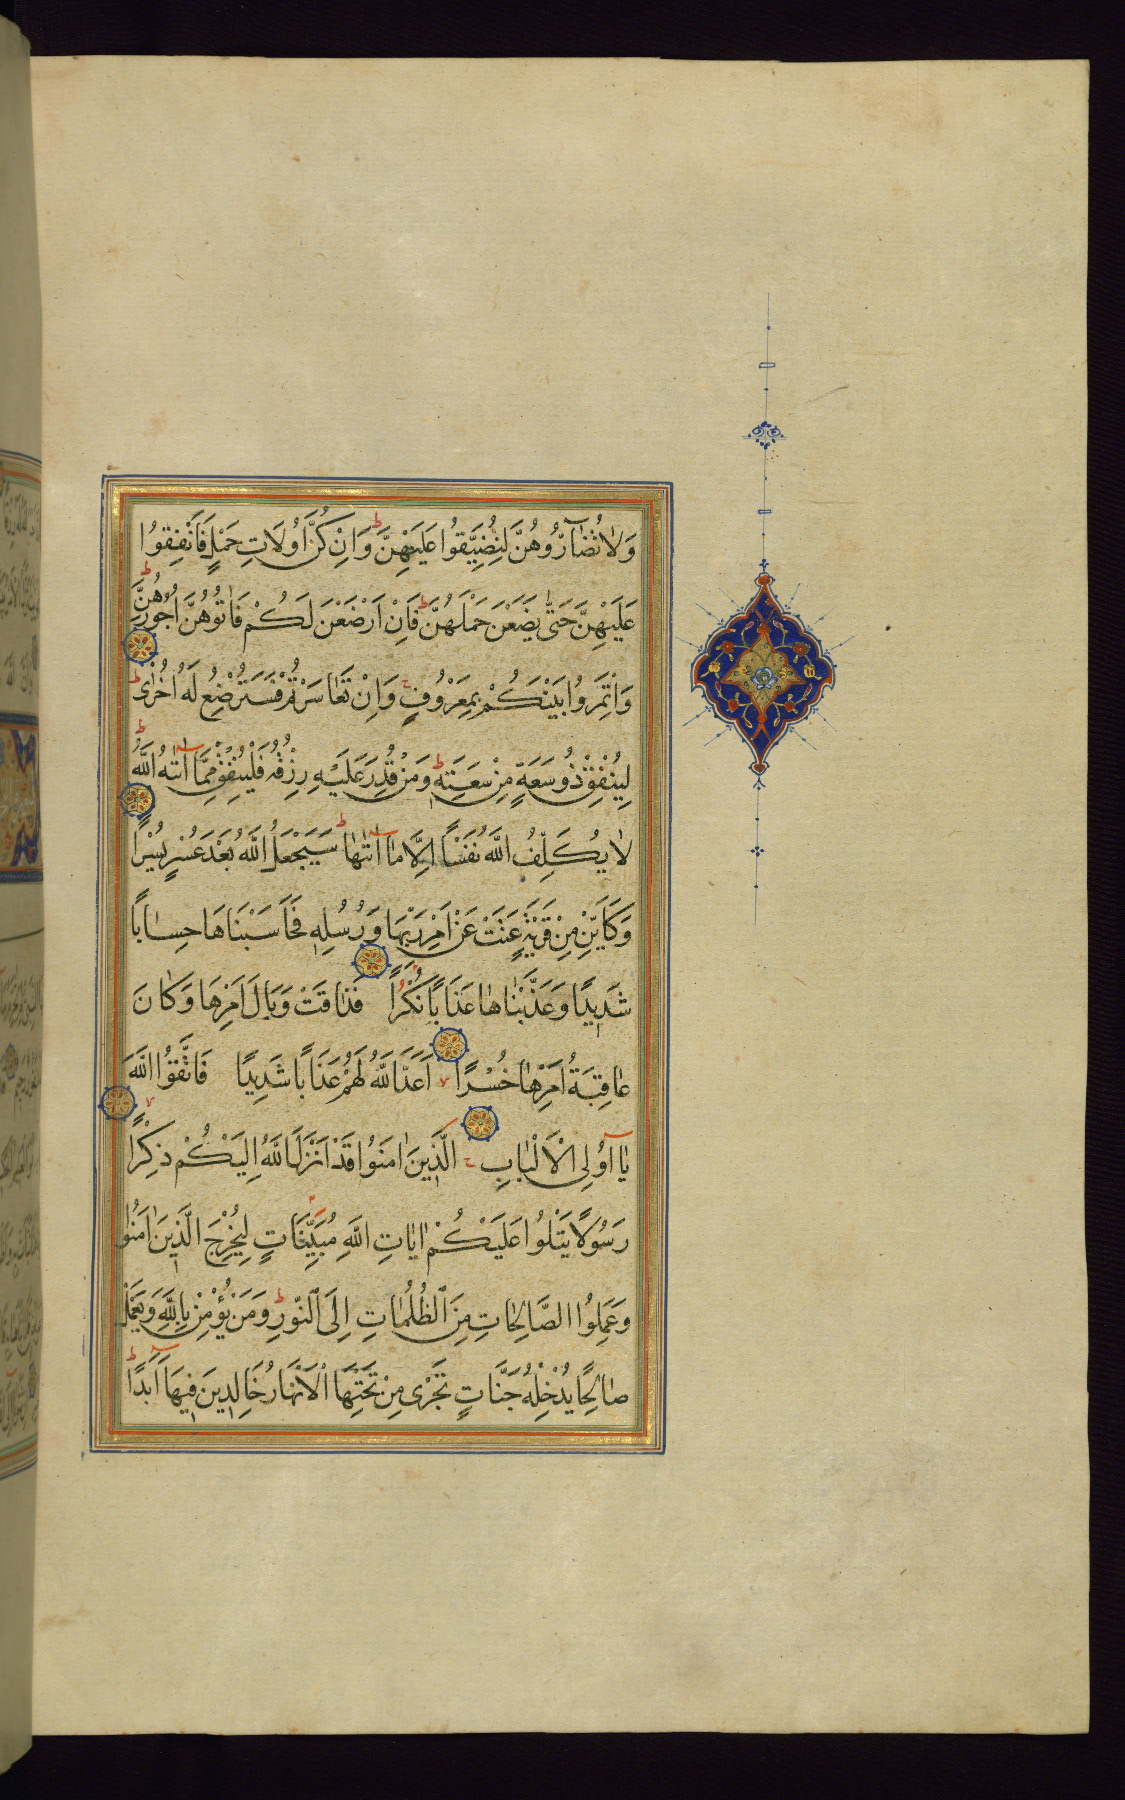 وَلَا تُضَآرُّوهُنَّ لِتُضَيِّقُوا عَلَيْهِنَّ ط وَاِنْ كُنَّ اُولَاتِ حَمْلٍ فَاَنْفِقُوا
عَلَيْهِنَّ حَتّٰى يَضَعْنَ حَمْلَهُنَّ ط فَاِنْ اَرْضَعْنَ لَكُمْ فَاٰتُوهُنَّ اُجُورَهُنَّ ط
وَاْتَمِرُوا بَيْنَكُمْ بِمَعْرُوفٍ ج وَاِنْ تَعَاسَرْتُمْ فَسَتُرْضِعُ لَهُ اُخْرٰى ط
لِيُنْفِقْ ذُو سَعَةٍ مِنْ سَعَتِهٖ ط وَمَنْ قُدِرَ عَلَيْهِ رِزْقُهُ فَلْيُنْفِقْ مِمَّا اٰتٰهُ اللّٰهُ ط
لَا يُكَلِّفُ اللّٰهُ نَفْسًا اِلَّا مَا اٰتٰيهَا ط سَيَجْعَلُ اللّٰهُ بَعْدَ عُسْرٍ يُسْرًا
وَكَاَيِّنْ مِنْ قَرْيَةٍ عَتَتْ عَنْ اَمْرِ رَبِّهَا وَرُسُلِهٖ فَحَاسَبْنَاهَا حِسَابًا
شَدِيدًا وَعَذَّبْنَاهَا عَذَابًا نُكُرًا فَذَاقَتْ وَبَالَ اَمْرِهَا وَكَانَ
عَاقِبَةُ اَمْرِهَا خُسْرًا اَعَدَّ اللّٰهُ لَهُمْ عَذَابًا شَدِيدًا فَاتَّقُوا اللّٰهَ
يَا اُولِي الْاَلْبَابِ ج الَّذِينَ اٰمَنُوا قَدْ اَنْزَلَ اللّٰهُ اِلَيْكُمْ ذِكْرًا
رَسُولًا يَتْلُوا عَلَيْكُمْ اٰيَاتِ اللّٰهِ مُبَيِّنَاتٍ لِيُخْرِجَ الَّذِينَ اٰمَنُوا
وَعَمِلُوا الصَّالِحَاتِ مِنَ الظُّلُمَاتِ اِلَى النُّورِ ط وَمَنْ يُؤْمِنْ بِاللّٰهِ وَيَعْمَلْ
صَالِحًا يُدْخِلْهُ جَنَّاتٍ تَجْرِي مِنْ تَحْتِهَا الْاَنْهَارُ خَالِدِينَ فِيهَا اَبَدًا ط